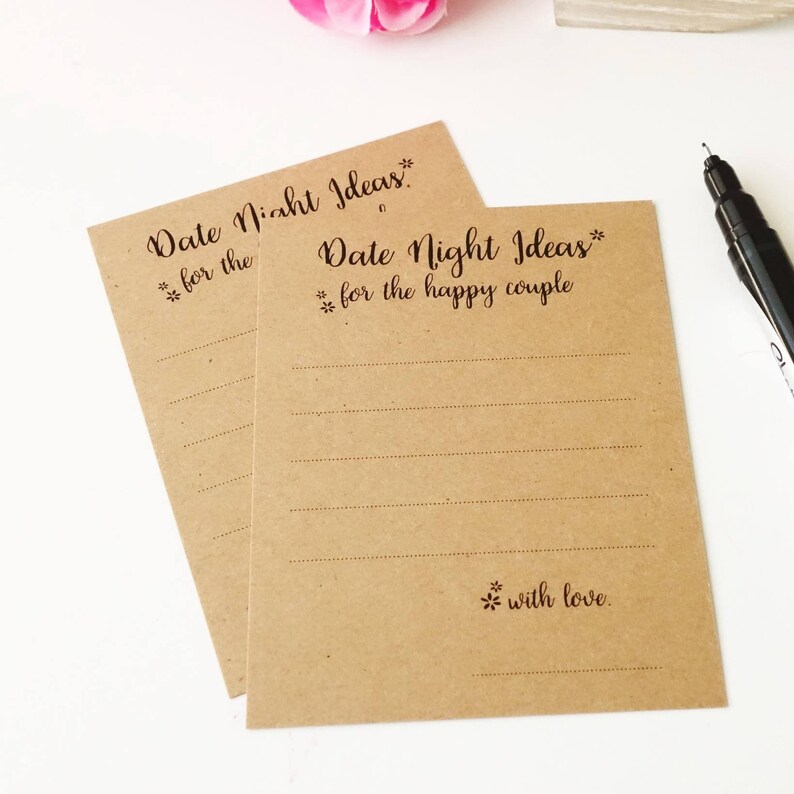 Date Night Ideas
for the
Date Night Ideas
for the happy couple
with love.